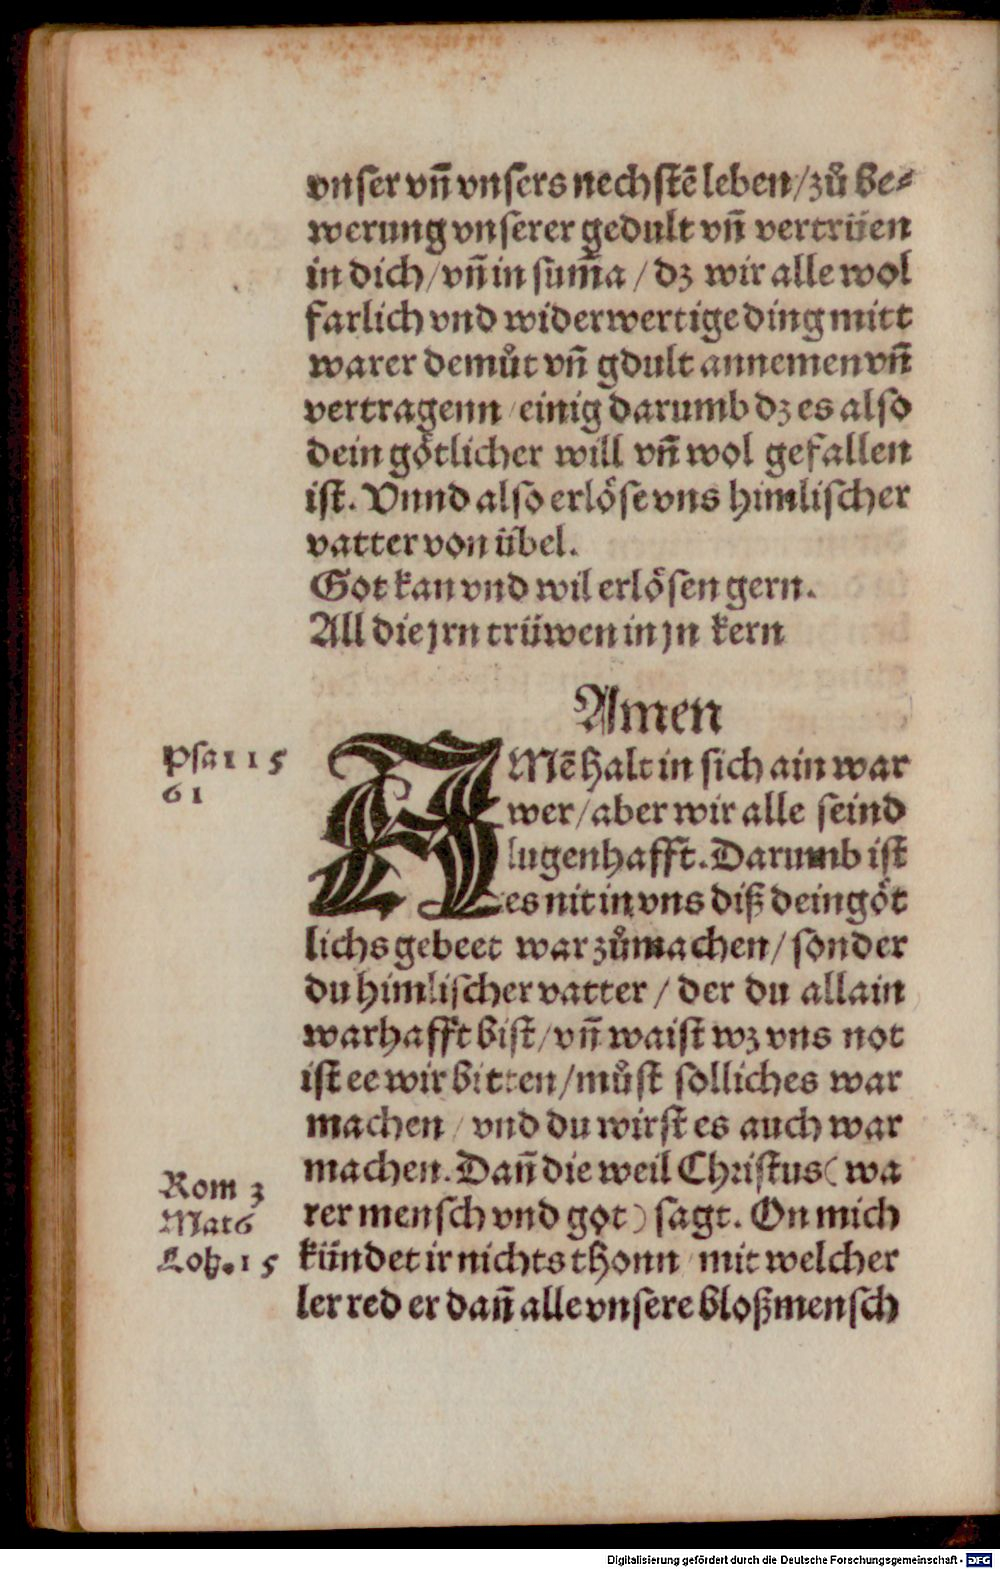 vnser vñ vnsers nechstẽ leben/zů be⸗
werung vnserer gedult vñ vertrüen
in dich/vñ in sum̃a / dz wir alle wol
farlich vnd widerwertige ding mitt
warer demůt vñ gdult annemen vñ
vertragenn/einig darumb dz es also
dein götlicher will vñ wol gefallen
ist. Vnnd also erlöse vns himlischer
vatter von übel.
Got kan vnd wil erlösen gern.
All die jrn trüwen in jn kern
Amen
Psa 115
61
AMẽ halt in sich ain war
wer/aber wir alle seind
lugenhafft. Darumb ist
es nit in vns diß dein göt
lichs gebeet war zůmachen/sonder
du himlischer vatter / der du allain
warhafft bist/vñ waist wz vns not
ist ee wir bitten/můst solliches war
machen/vnd du wirst es auch war
machen. Dañ die weil Christus( wa
rer mensch vnd got) sagt. On mich
kündet ir nichts thonn/mit welcher
ler red er dañ alle vnsere bloß mensch
Rom 3
Mat 6
Joh. 15
Digitalisierung gefördert durch die Deutsche Forschungsgemeinschaft - DFG